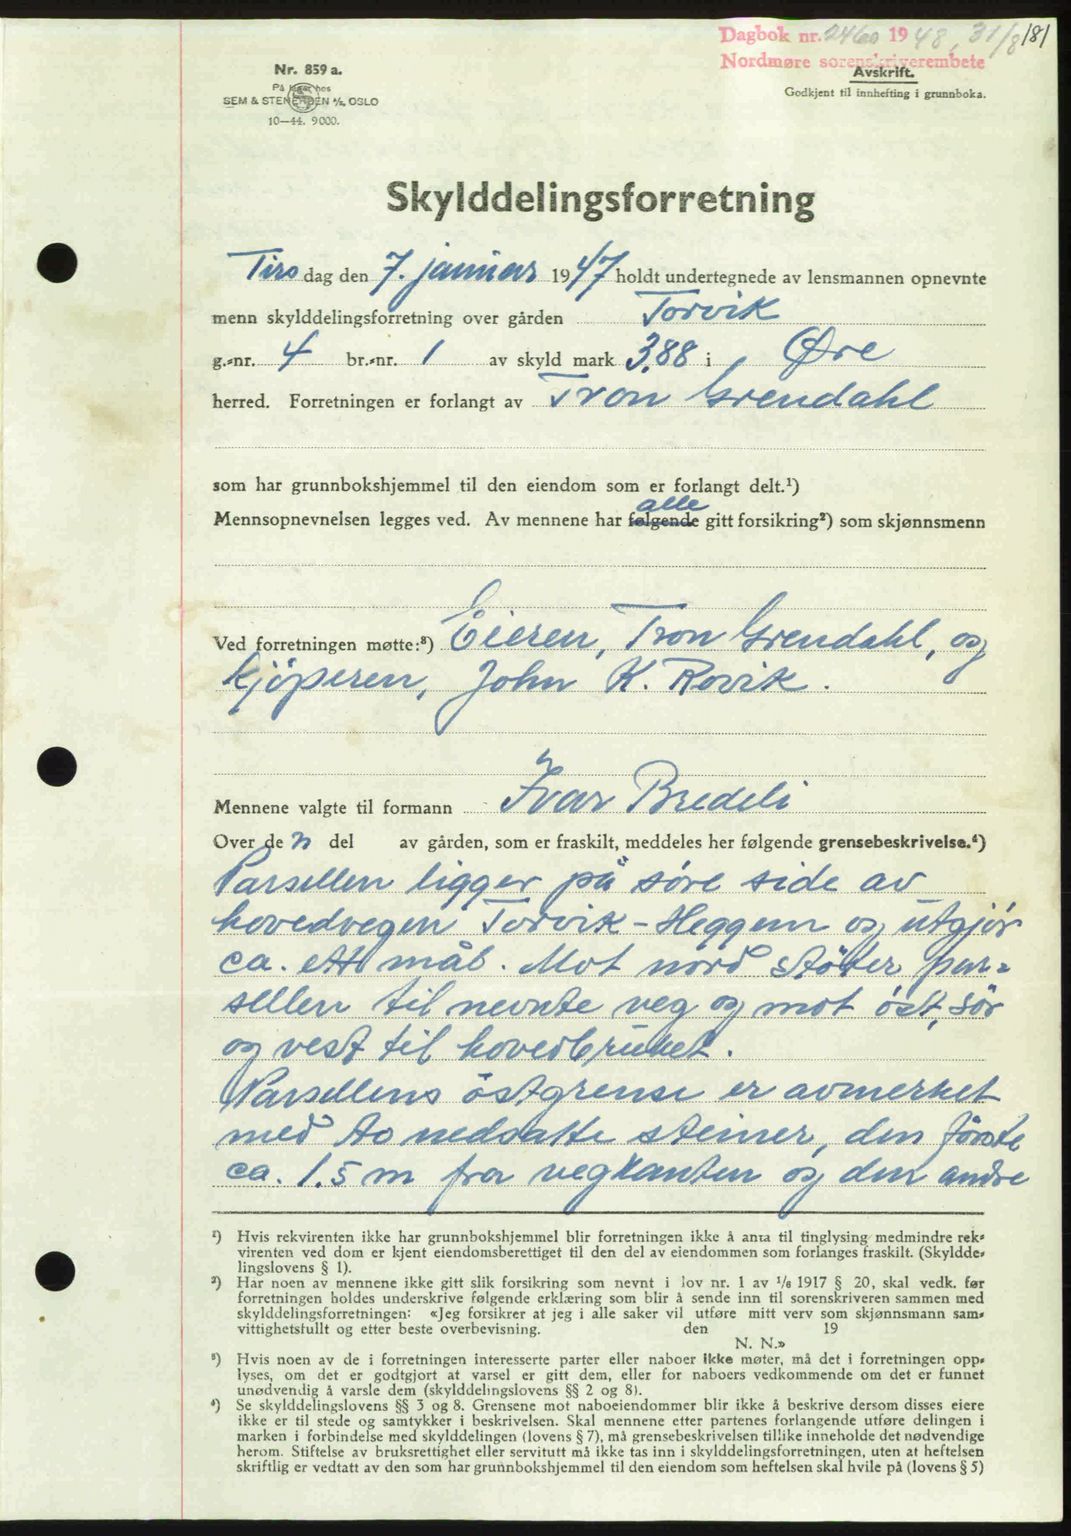 Dagbok nr. 2460 1948, 31/8 181
Nordmøre sorenskriverembete
Nr. 859 a.
På lager hos
SEM & STENERSEN A/S, OSLO
10—44. 9000.
Avskrift.
Godkjent til innhefting i grunnboka.
Skylddelingsforretning
Tirsdag den 7. januar 1947 holdt undertegnede av lensmannen opnevnte
menn skylddelingsforretning over gården Torvik
g.-nr. 4 br.-nr. 1 av skyld mark 3,88 i Øre
herred. Forretningen er forlangt av Tron Grendahl
som har grunnbokshjemmel til den eiendom som er forlangt delt.¹)
alle
Mennsopnevnelsen legges ved. Av mennene har følgende gitt forsikring²) som skjønnsmenn
Ved forretningen møtte:³) Eieren, Tron Grendahl, og
kjöperen, John K. Rovik.
Mennene valgte til formann Ivar Bredeli
Over den del av gården, som er fraskilt, meddeles her følgende grensebeskrivelse.⁴)
Parsellen ligger på søre side av
hovedvegen Torvik-Heggem og utgjör
ca. ett mål. Mot nord støter par-
sellen til nevnte veg og mot öst, sör
og vest til hovedbruket.
Parsellens östgrense er avmerket
med to nedsatte steiner, den förste
ca. 1.5 m fra vegkanten og den andre
¹) Hvis rekvirenten ikke har grunnbokshjemmel blir forretningen ikke å anta til tinglysing medmindre rek-
virenten ved dom er kjent eiendomsberettiget til den del av eiendommen som forlanges fraskilt. (Skyldde-
lingslovens § 1).
²) Har noen av mennene ikke gitt slik forsikring som nevnt i lov nr. 1 av 1/6 1917 § 20, skal vedk. før
forretningen holdes underskrive følgende erklæring som blir å sende inn til sorenskriveren sammen med
skylddelingsforretningen: «Jeg forsikrer at jeg i alle saker vil utføre mitt verv som skjønnsmann sam-
vittighetsfullt og etter beste overbevisning. den 19
N. N.»
³) Hvis noen av de i forretningen interesserte parter eller naboer ikke møter, må det i forretningen opp-
lyses, om det er godtgjort at varsel er gitt dem, eller for naboers vedkommende om det er funnet
unødvendig å varsle dem (skylddelingslovens §§ 2 og 8).
⁴) Se skylddelingslovens §§ 3 og 8. Grensene mot naboeiendommer blir ikke å beskrive dersom disses eiere
ikke er til stede og samtykker i beskrivelsen. Skal mennene etter partenes forlangende utføre delingen i
marken i forbindelse med skylddelingen (lovens § 7), må grensebeskrivelsen tillike inneholde det nødvendige
herom. Stiftelse av bruksrettighet eller servitutt må ikke tas inn i skylddelingsforretningen, uten at heftelsen
skriftlig er vedtatt av den som har grunnbokshjemmel til den eiendom som heftelsen skal hvile på (lovens § 5)